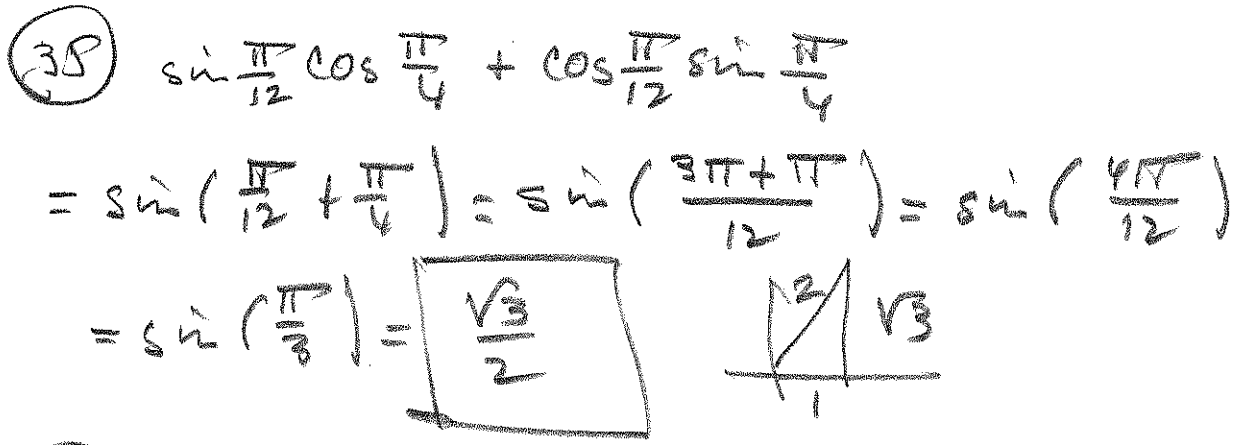 38 sin π/12 cos π/4 + cos π/12 sin π/4
= sin(π/12 + π/4) = sin(3π+π/12) = sin(4π/12)
= sin(π/3) = √3/2 2 √3
1